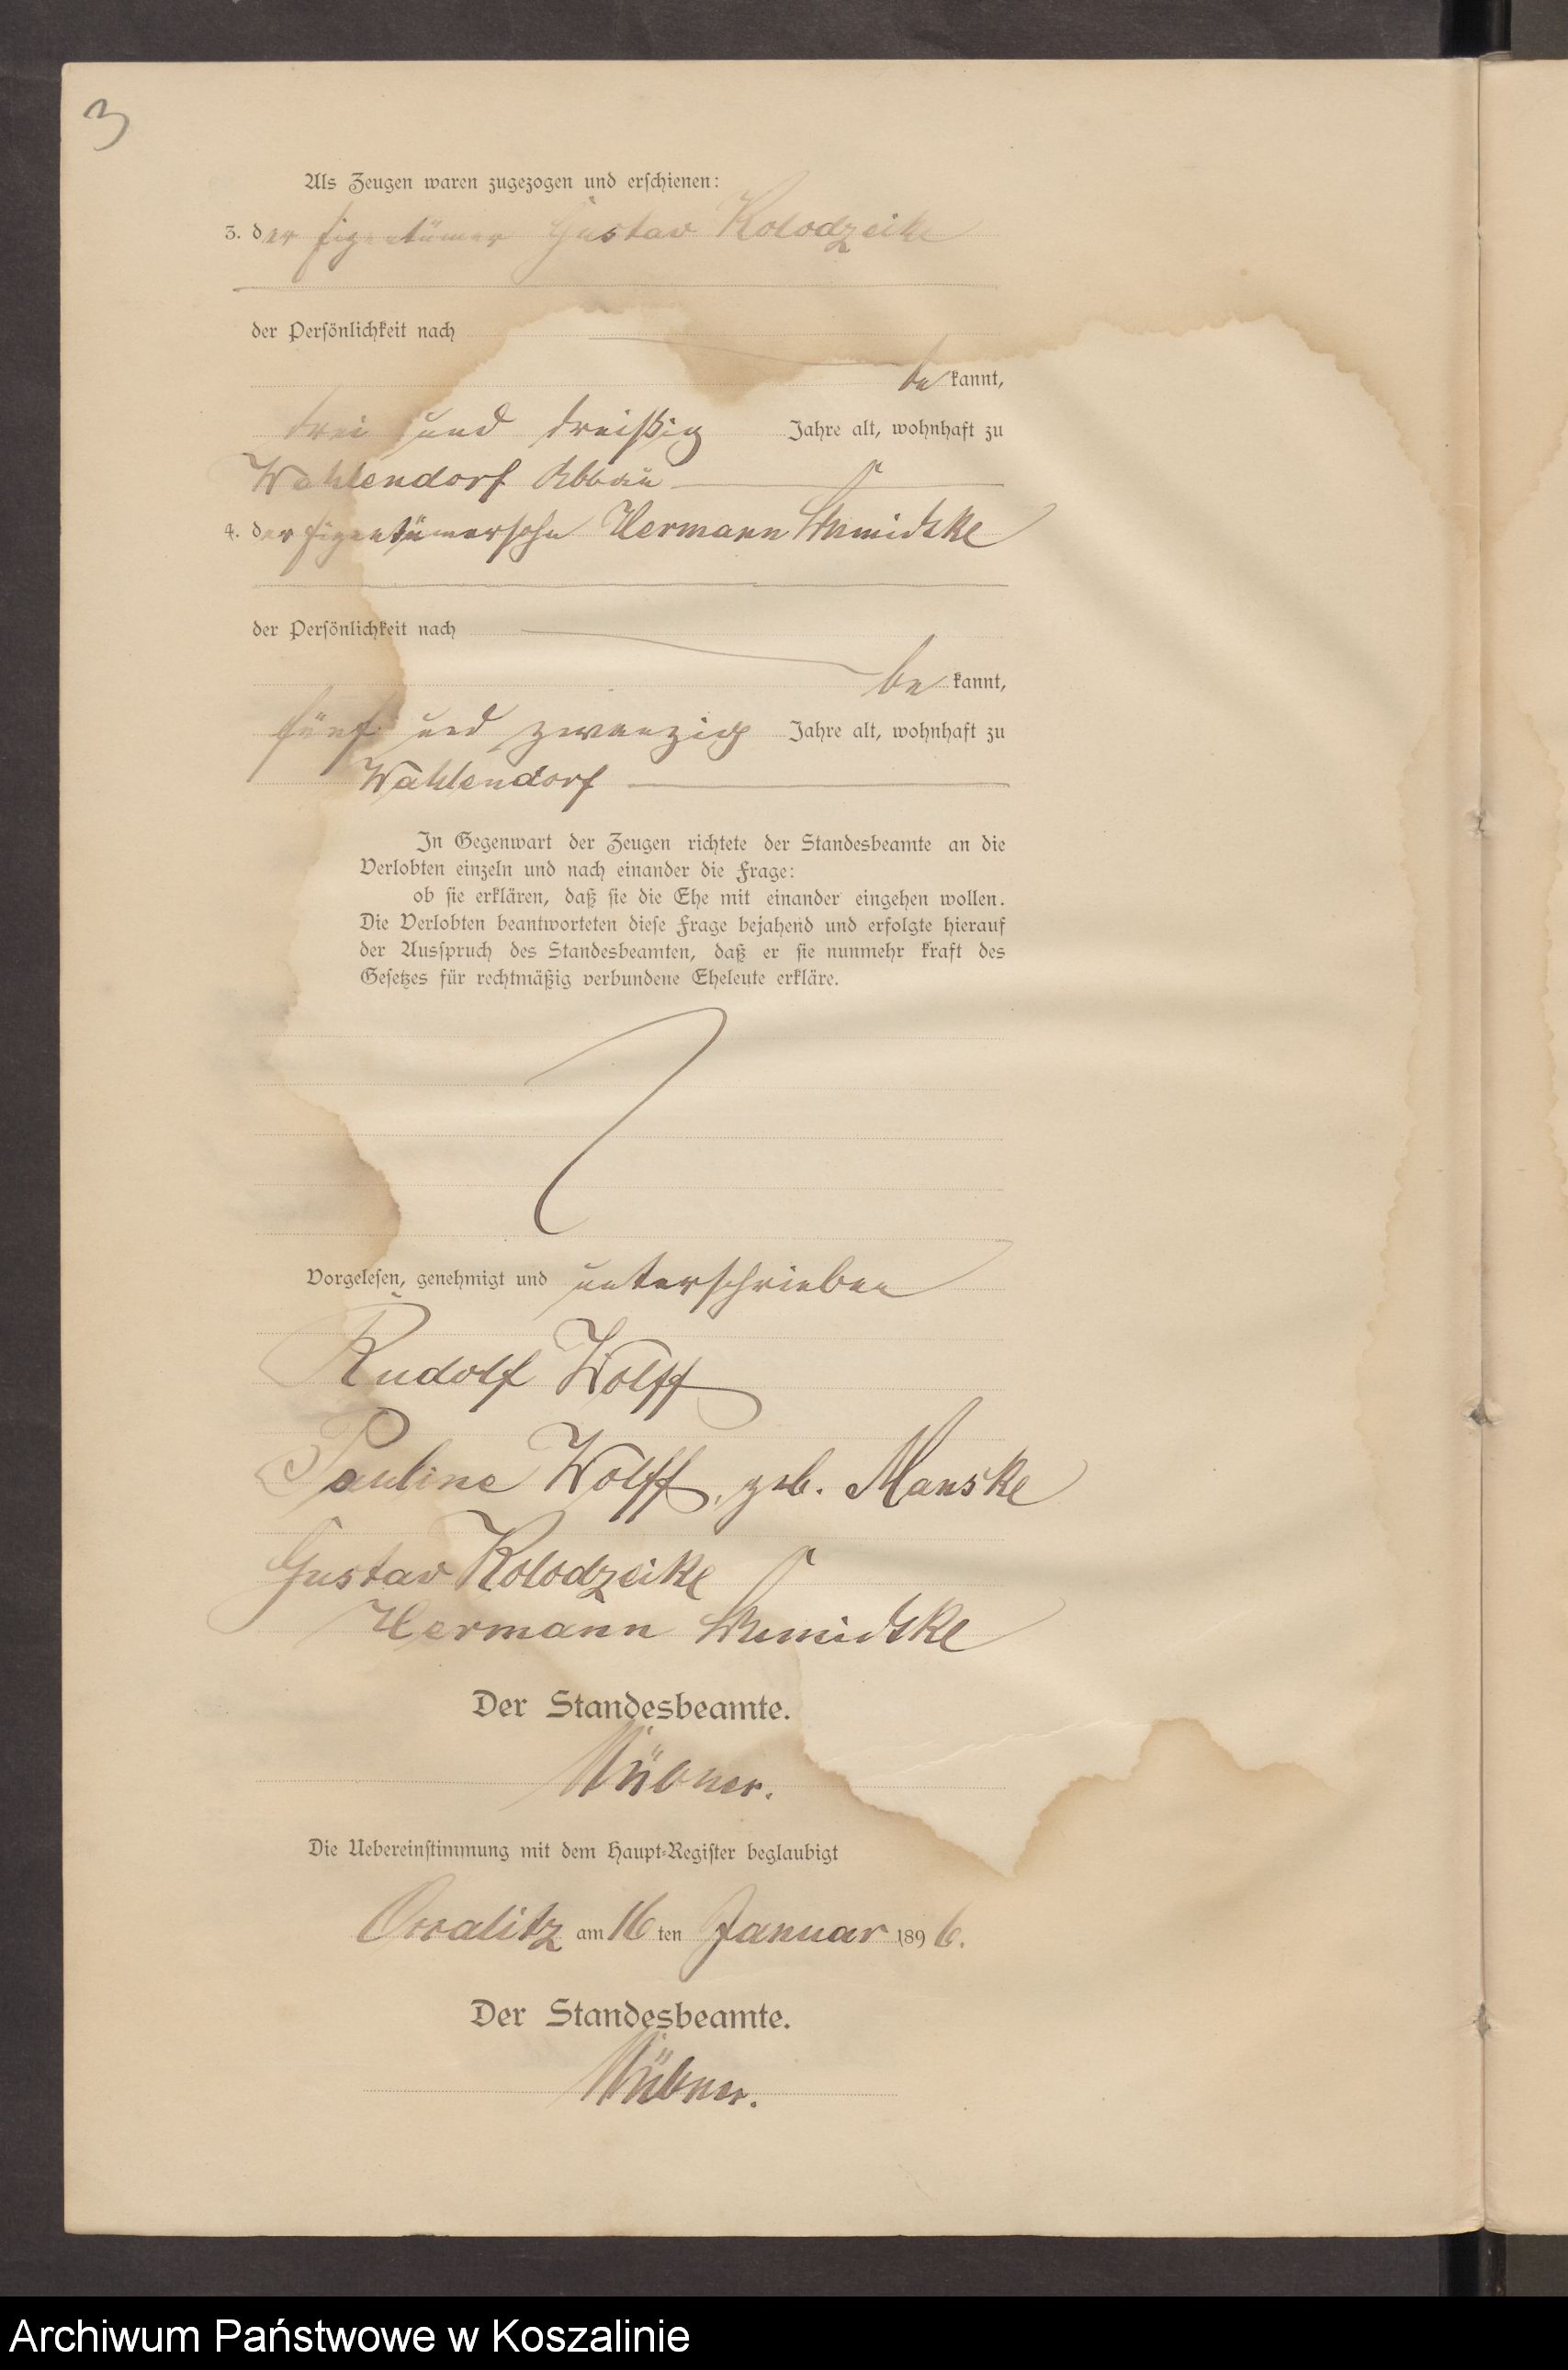 3
Als Zeugen waren zugezogen und erschienen:
3. der Eigentümer Gustav Kolodzeike
der Persönlichkeit nach
be kannt,
drei und dreißig Jahre alt, wohnhaft zu
Wahlendorf Abbau
4. der Eigentümersohn Hermann Schmidtke
der Persönlichkeit nach
be kannt,
fünf und zwanzig Jahre alt, wohnhaft zu
Wahlendorf
In Gegenwart der Zeugen richtete der Standesbeamte an die
Verlobten einzeln und nach einander die Frage:
ob sie erklären, daß sie die Ehe mit einander eingehen wollen.
Die Verlobten beantworteten diese Frage bejahend und erfolgte hierauf
der Ausspruch des Standesbeamten, daß er sie nunmehr kraft des
Gesetzes für rechtmäßig verbundene Eheleute erkläre.
Vorgelesen, genehmigt und unterschrieben
Rudolf Wolff
Pauline Wolff, geb. Manske
Gustav Kolodzeike
Hermann Schmidtke
Der Standesbeamte.
Die Uebereinstimmung mit dem Haupt-Register beglaubigt
am 16 ten Januar 189 6.
Der Standesbeamte.
Archiwum Państwowe w Koszalinie